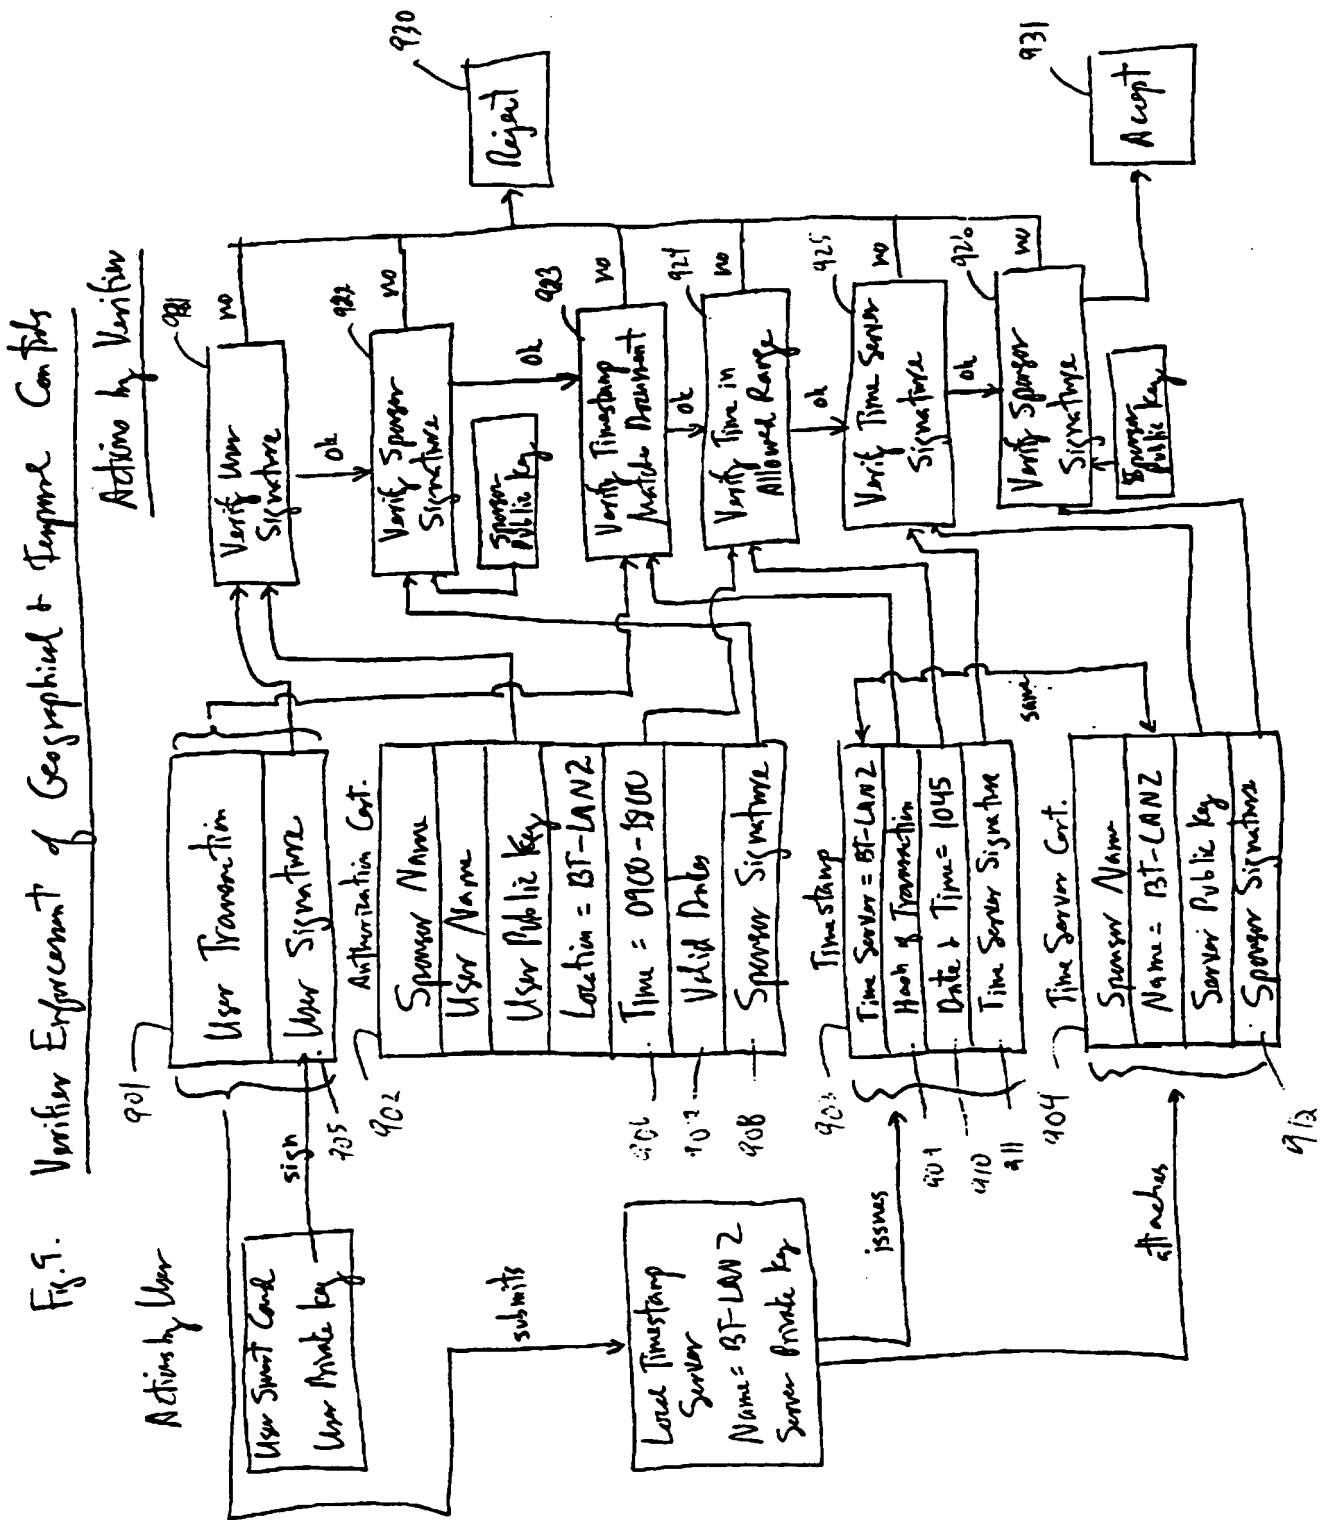 Fig. 9. Verifier Enforcement of Geographical & Temporal Controls
Actions by User
Actions by Verifier
User Smart Card
User Private Key
sign
submits
Local Timestamp
Server
Name = BT-LAN2
Server Private Key
issues
attaches
901
User Transaction
User Signature
905
902
Authorization Cert.
Sponsor Name
User Name
User Public Key
Location = BT-LAN2
Time = 0900-1800
Valid Dates
Sponsor Signature
908
903
Timestamp
Time Server = BT-LAN2
Hash of Transaction
Date & Time = 1045
Time Server Signature
910
911
same
904
Time Server Cert.
Sponsor Name
Name = BT-LAN2
Server Public Key
Sponsor Signature
912
921
Verify User
Signature
no
ok
922
Verify Sponsor
Signature
no
ok
Sponsor
Public Key
923
Verify Timestamp
Matches Document
no
ok
924
Verify Time in
Allowed Range
no
ok
925
Verify Time Server
Signature
no
ok
926
Verify Sponsor
Signature
no
Sponsor
Public Key
930
Reject
931
Accept